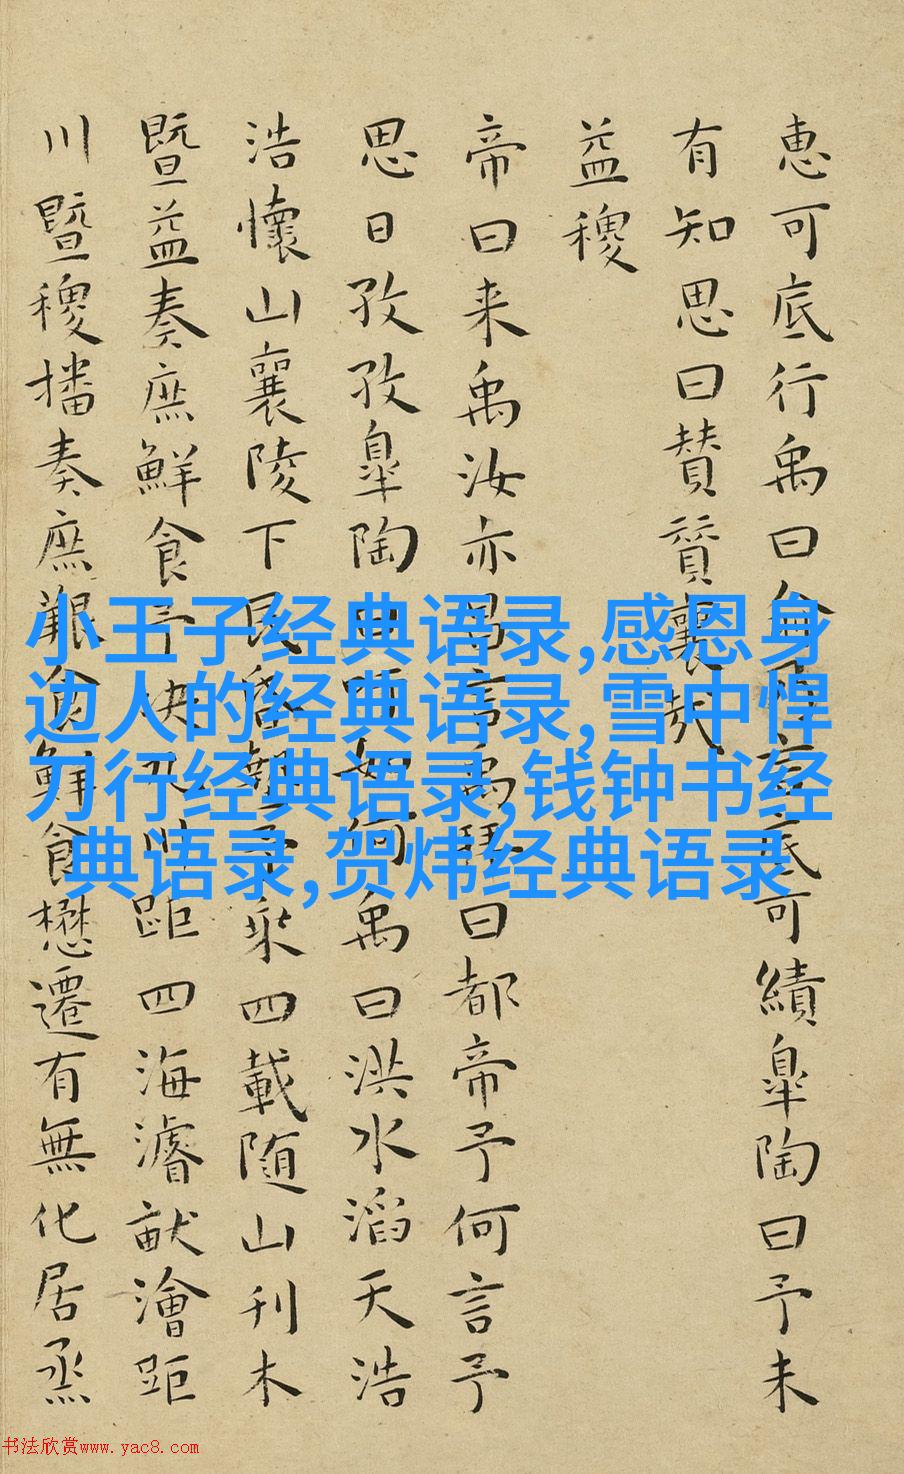 恵可底行禹曰俞乃言底可績皐陶曰予未
有知思曰賛賛襄哉
益稷
帝曰来禹汝亦昌言禹拜曰都帝予何言予
思日孜孜皐陶曰吁如何禹曰洪水滔天浩
浩懷山襄陵下民昏墊予乘四載随山刊木
暨益奏庶鮮食予決九川距四海濬畎澮距
川暨稷播奏庶艱食鮮食懋遷有無化居烝
小王子经典语录,感恩身
边人的经典语录,雪中悍
刀行经典语录,钱钟书经
典语录,贺炜经典语录
书法欣赏www.yac8.com